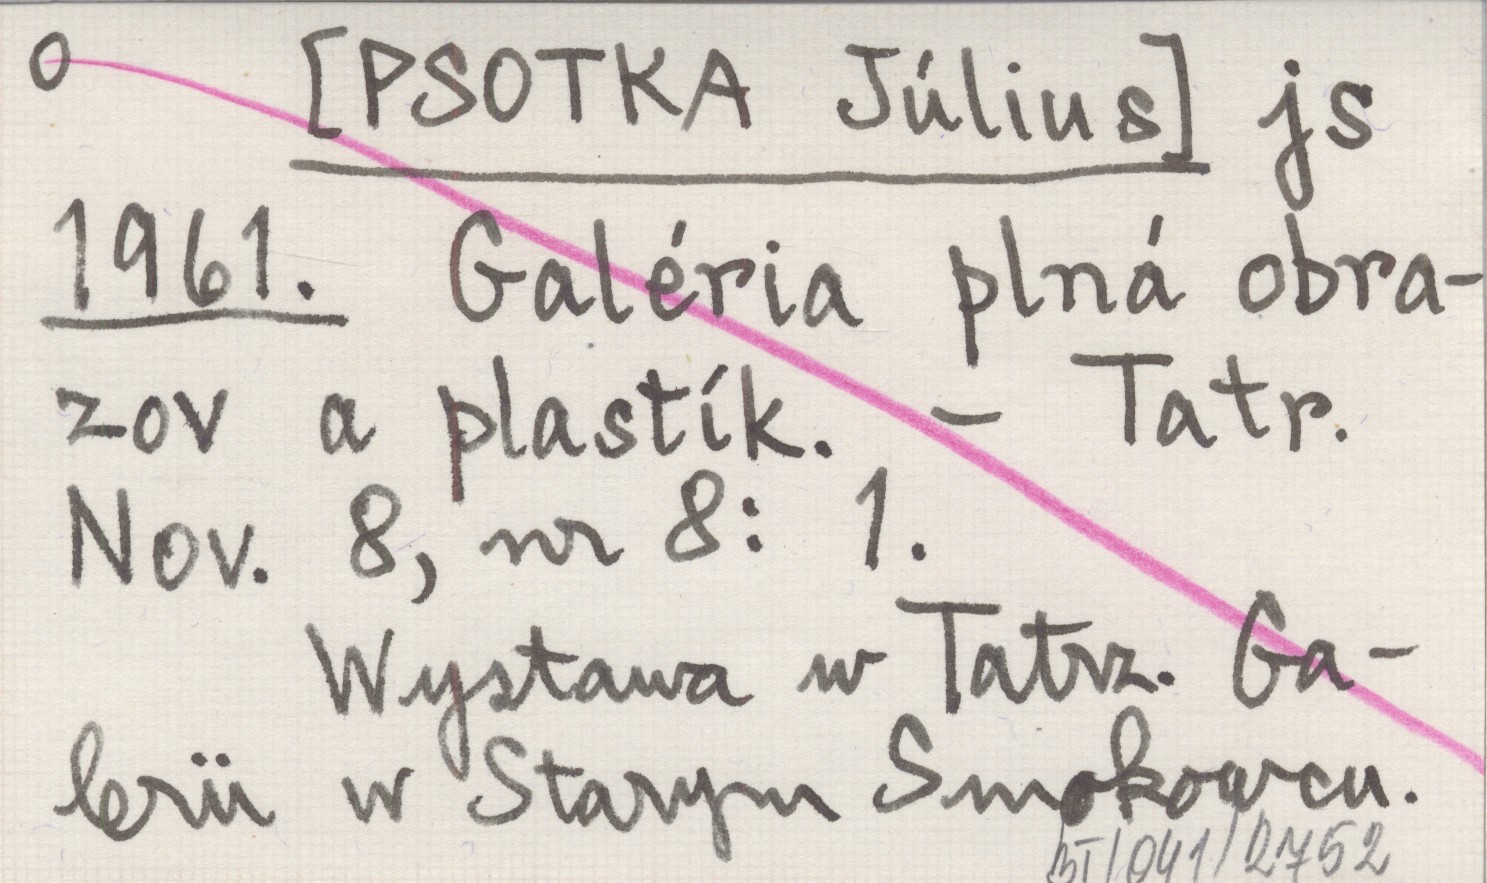 O [PSOTKA Július] js
1961. Galéria plná obra-
zov a plastík. – Tatr.
Nov. 8, nr 8: 1.
Wystawa w Tatrz. Ga-
lerii w Starym Smokowcu.
BT/041/2752